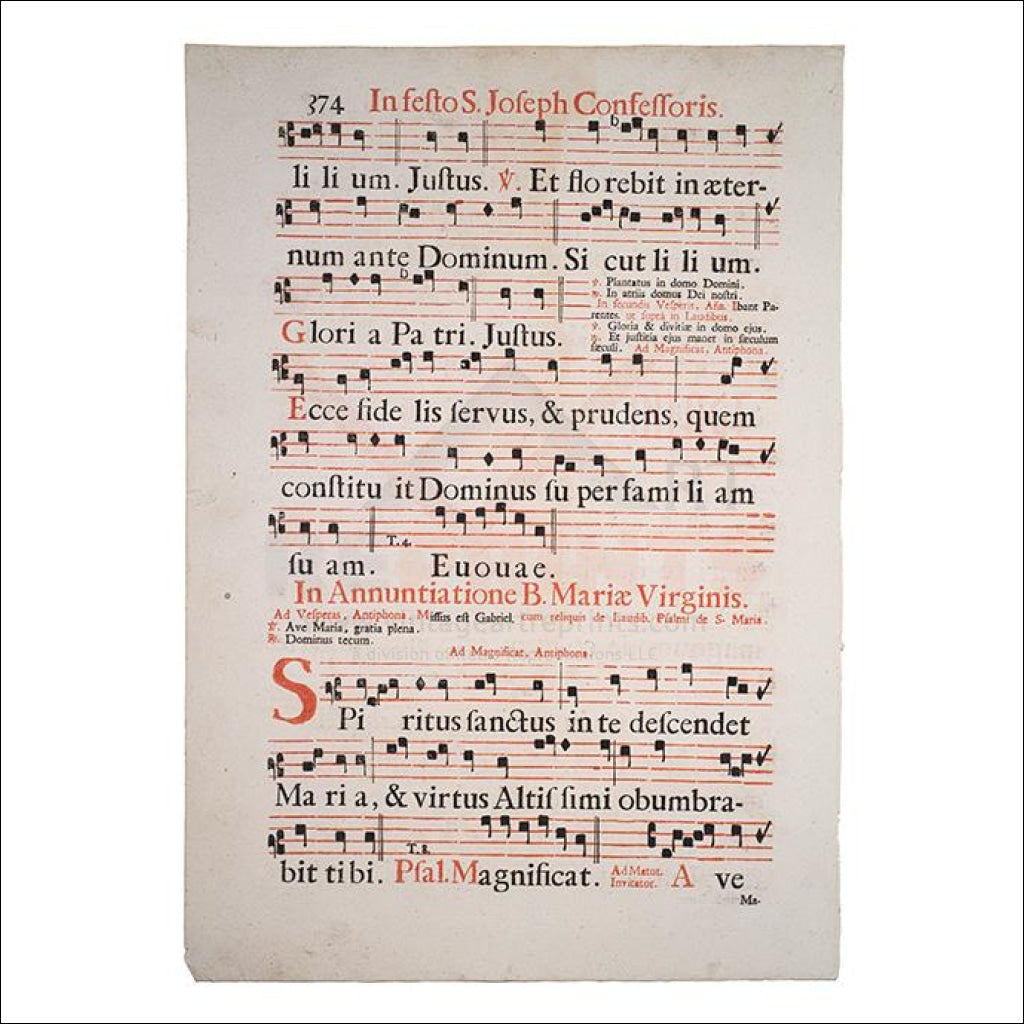 374 In festo S. Joseph Confessoris.
li li um. Justus. ℣. Et flo rebit in æter-
num ante Dominum. Si cut li li um.
℣. Plantatus in domo Domini.
℟. In atriis domus Dei nostri.
In secundis Vesperis, Aña. Ibant Pa-
rentes, ut supra in Laudibus.
℣. Gloria & divitiæ in domo ejus.
℟. Et justitia ejus manet in sæculum
sæculi. Ad Magnificat, Antiphona.
Glori a Pa tri. Justus.
Ecce fide lis servus, & prudens, quem
constitu it Dominus su per fami li am
T. 4.
su am. Euouae.
In Annuntiatione B. Mariæ Virginis.
Ad Vesperas, Antiphona, Missus est Gabriel, cum reliquis de Laudib. Psalmi de S. Maria.
℣. Ave Maria, gratia plena.
℟. Dominus tecum.
Ad Magnificat, Antiphona.
SPi ritus sanctus in te descendet
Ma ri a, & virtus Altis simi obumbra-
T. 8.
bit ti bi. Psal. Magnificat. Ad Matut. Invitator. A ve
Ma-